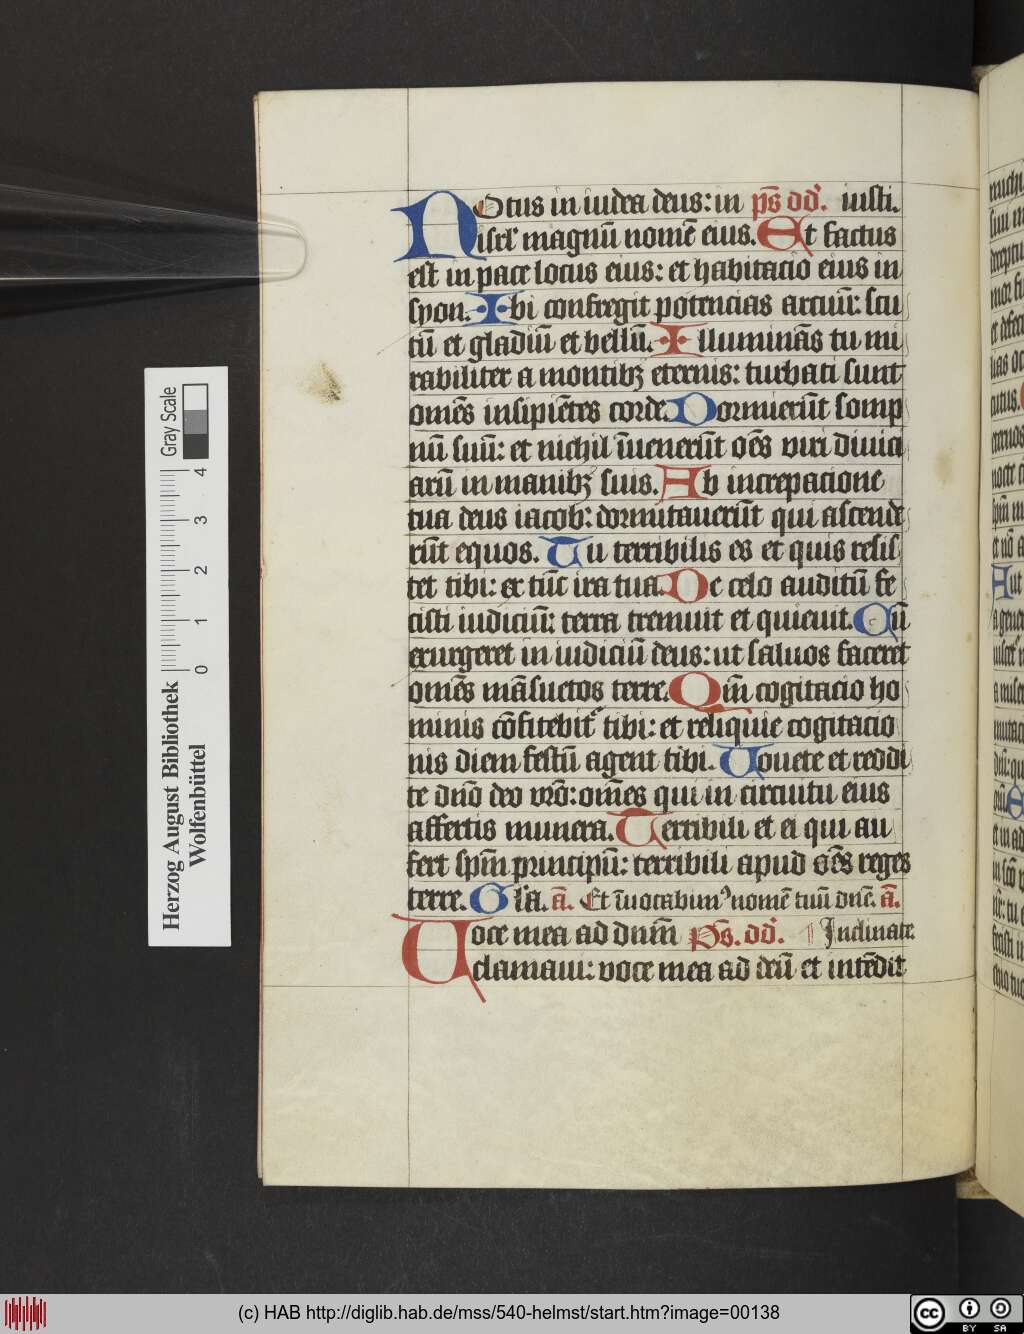 NOtus in iudea deus: in ps̄ dd̓. iusti.
isrl̓ magnū nomē eius. Et factus
est in pace locus eius: et habitacio eius in
syon. Ibi confregit potencias arcuū: scu
tū et gladiū et bellū. Illuminās tu mi
rabiliter a montibꝫ eternis: turbati sunt
omēs insipiētes corde. Dormierūt somp
nū suū: et nichil īuenerūt oēs viri diuici
arū in manibꝫ suis. Ab increpacione
tua deus iacob: dormitauerūt qui ascende
rūt equos. Tu terribilis es et quis resis
tet tibi: ex tūc ira tua. De celo auditū fe
cisti iudiciū: terra tremuit et quieuit. Cū
exurgeret in iudiciū deus: ut saluos faceret
omēs māsuetos terre. Qm̄ cogitacio ho
minis cōfitebit᷑ tibi: et reliquie cogitacio
nis diem festū agent tibi. Uouete et reddi
te dnō deo vrō: omēs qui in circuitu eius
affertis munera. Terribili et ei qui au
fert spm̄ principū: terribili apud oēs reges
terre. Gl̓a. ā. Et īuocabimꝰ nomē tuū dnē. ā.
Uoce mea ad dnm̄ Ps̄. dd̓. Inclinate.
clamaui: voce mea ad deū et intēdit
Herzog August Bibliothek
Wolfenbüttel
0 1 2 3 4
Gray Scale
(c) HAB http://diglib.hab.de/mss/540-helmst/start.htm?image=00138
cc BY SA